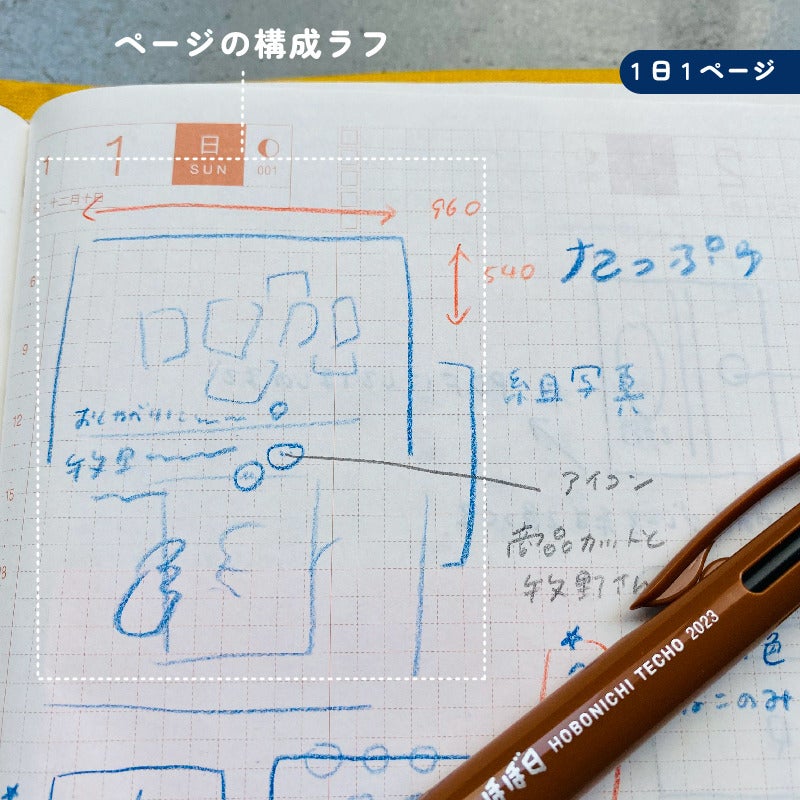 ページの構成ラフ
1日1ページ
1
1
日
SUN
001
十二月十日
960
6
540
たっぷり
9
組写真
12
アイコン
15
商品カットと
牧野さん
HOBONICHI TECHO 2023
色
このみ
ほぼ日